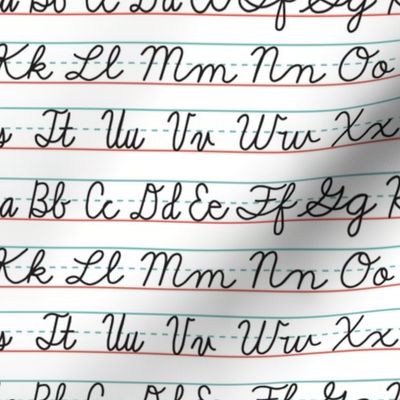 a Bb Cc Dd Ee Ff Gg
Kk Ll Mm Nn Oo
s Tt Uu Vv Ww Xx
a Bb Cc Dd Ee Ff Gg
Kk Ll Mm Nn Oo
s Tt Uu Vv Ww Xx
Bb Cc Dd Ee Ff Gg